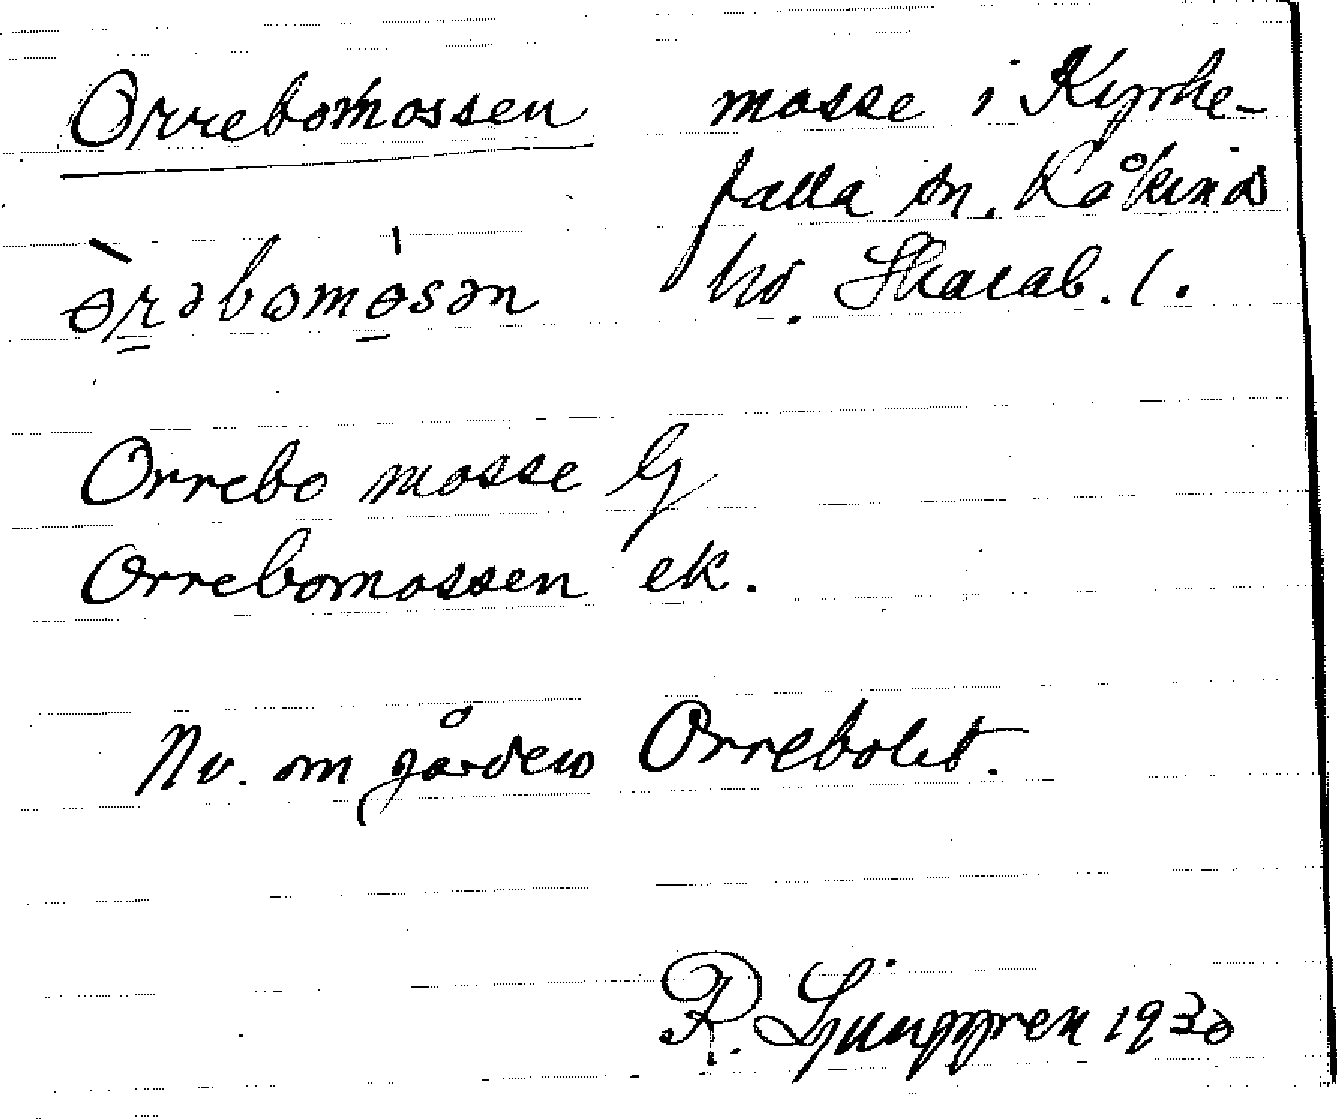 Orrebomossen mosse i Kyrke-
falla sn. Kåkinds
hd. Skarab. l.
ɵ̀rəbomɵ̍sən
Orrebo mosse G
Orrebomossen ek.
Nv. om gården Orrebolet.
R. Ljunggren 1930